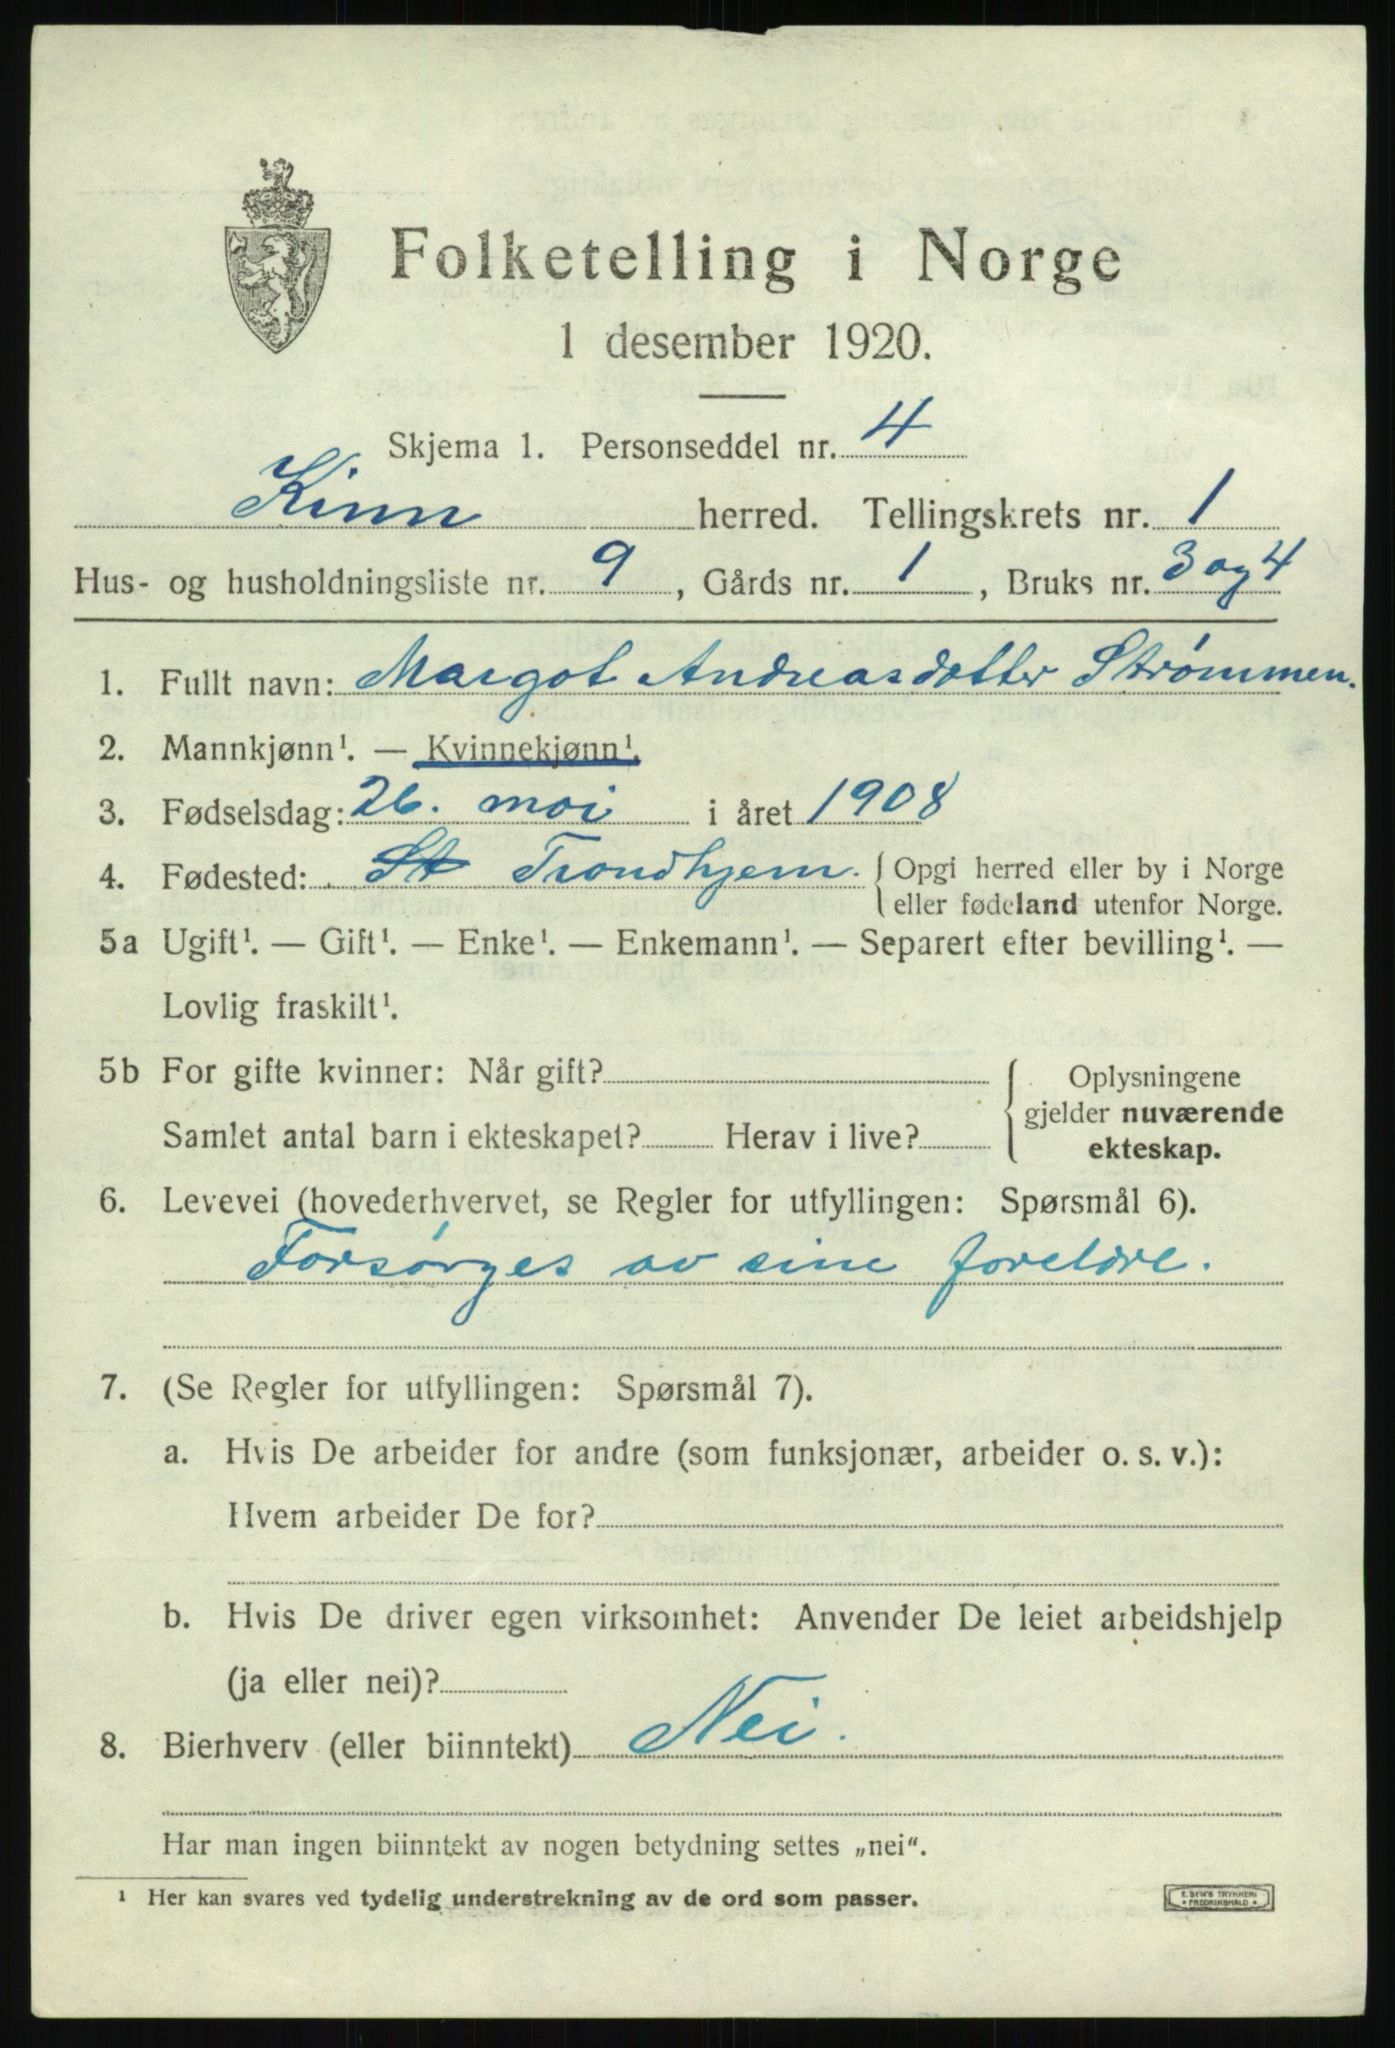 Folketelling i Norge
1 desember 1920.
Skjema 1. Personseddel nr. 4
Kinn herred. Tellingskrets nr. 1
Hus- og husholdningsliste nr. 9, Gårds nr. 1, Bruks nr. 3 og 4
1. Fullt navn: Margot Andreasdotter Strømmen.
2. Mannkjønn¹. — Kvinnekjønn¹.
3. Fødselsdag: 26. mai i året 1908
4. Fødested: St Trondhjem. Opgi herred eller by i Norge
eller fødeland utenfor Norge.
5a Ugift¹. — Gift¹. — Enke¹. — Enkemann¹. — Separert efter bevilling¹. —
Lovlig fraskilt¹.
5b For gifte kvinner: Når gift? Oplysningene
gjelder nuværende
Samlet antal barn i ekteskapet? Herav i live? ekteskap.
6. Levevei (hovederhvervet, se Regler for utfyllingen: Spørsmål 6).
Forsørges av sine foreldre.
7. (Se Regler for utfyllingen: Spørsmål 7).
a. Hvis De arbeider for andre (som funksjonær, arbeider o. s. v.):
Hvem arbeider De for?
b. Hvis De driver egen virksomhet: Anvender De leiet arbeidshjelp
(ja eller nei)?
8. Bierhverv (eller biinntekt) Nei.
Har man ingen biinntekt av nogen betydning settes „nei“.
¹ Her kan svares ved tydelig understrekning av de ord som passer.
E. SEM'S TRYKKERI
FREDRIKSHALD